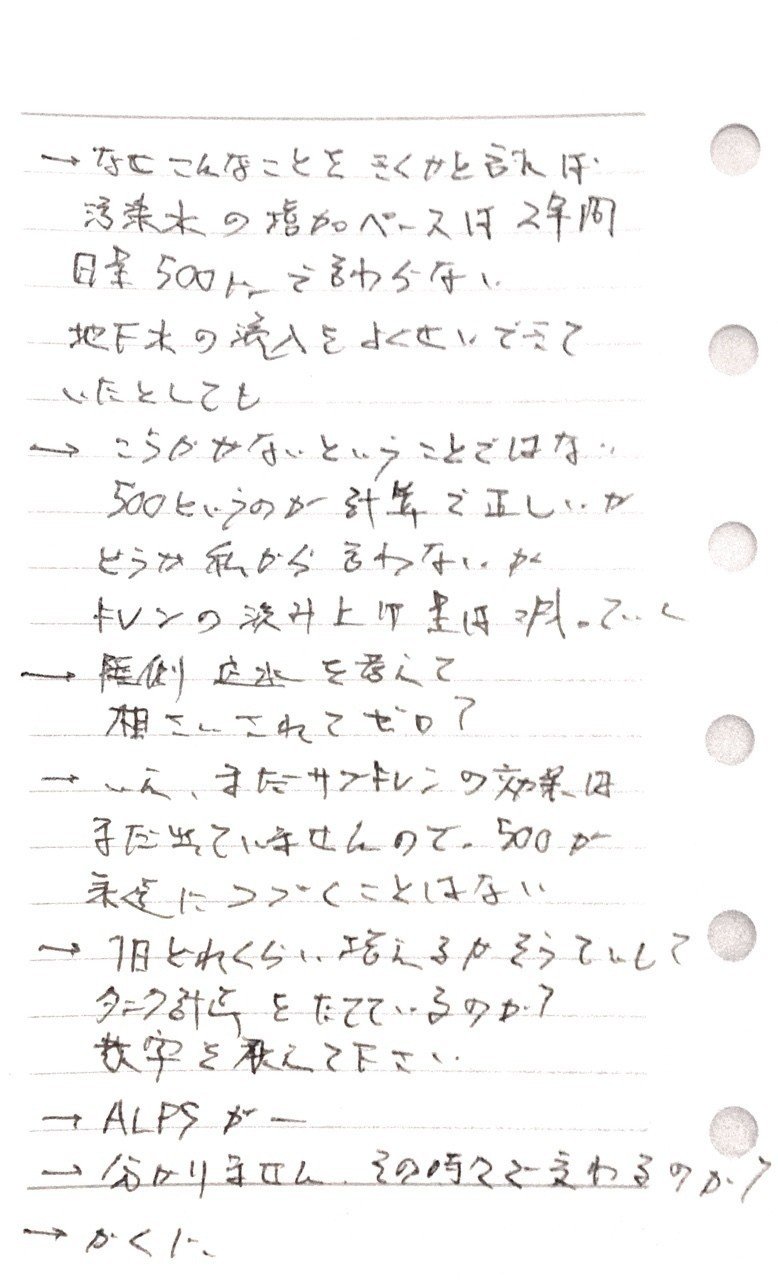 → なぜこんなことをきくかと言えば
汚染水の増加ペースは2年間
日量500トンで変わらない
地下水の流入をよくせいできて
いたとしても
→ こうかがないということではない
500というのが計算で正しいか
どうか私から言わないが
ドレンの汲み上げ量は減っていく
→ 陸側止水を考えて
相さいされてゼロ?
→ いえ、まだサブドレンの効果は
まだ出ていませんので。500が
永遠につづくことはない
→ 1日どれくらい増えるかそうていして
タンク計画をたてているのか?
数字を教えて下さい
→ ALPSがー
→ 分かりません、その時々で変わるのか?
→ かくに